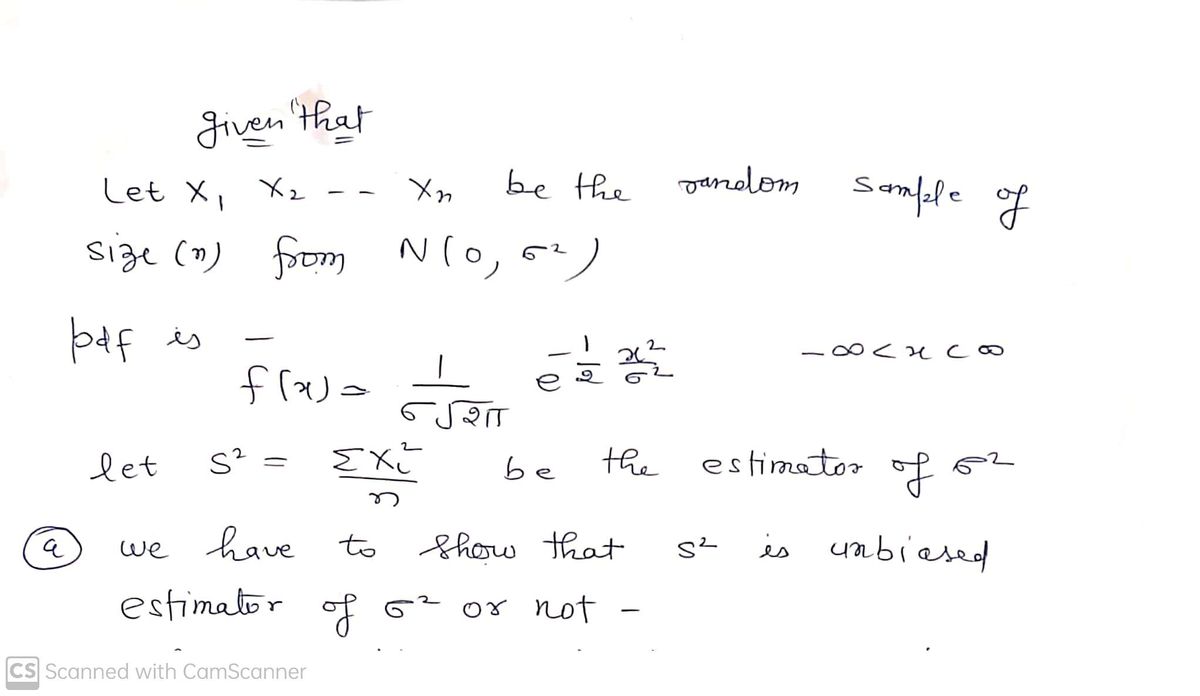 given that
Let X₁ X₂ -- Xₙ be the random sample of
size (n) from N(0, σ²)
pdf is -
f(x) = 1/(σ√2π) e^(-1/2 x²/σ²) -∞<x<∞
let S² = ΣXᵢ²/n be the estimator of σ²
(a) we have to show that s² is unbiased
estimator of σ² or not -
CS Scanned with CamScanner